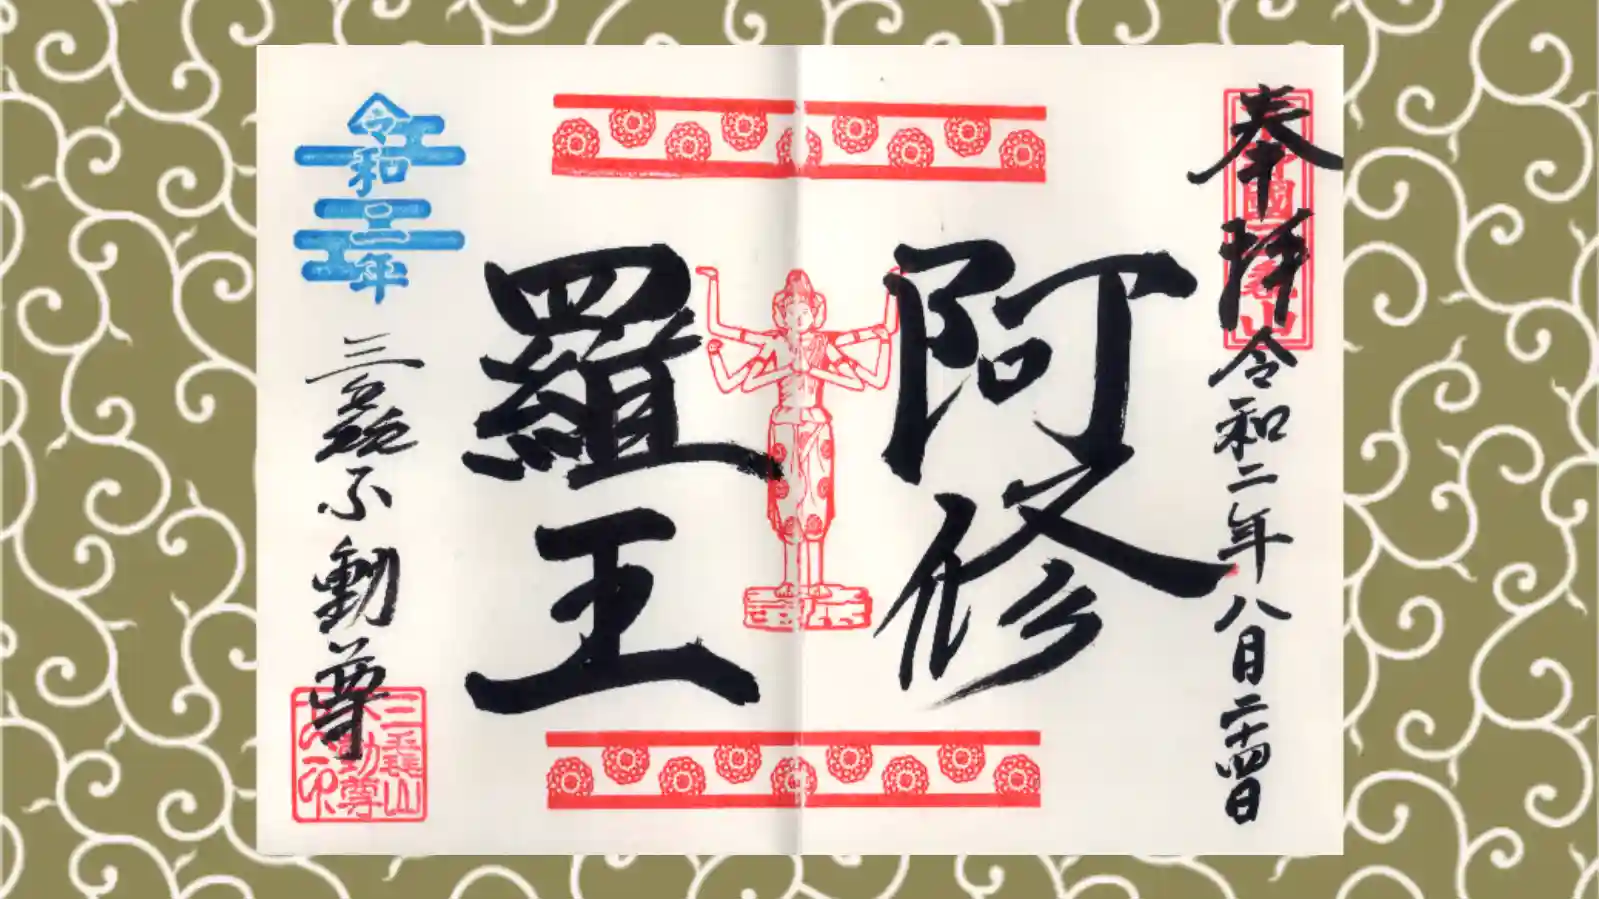 奉拝
令和二年八月二十四日
國三毳山
阿修
羅王
令和二年
三毳不動尊
三毳山
不動尊
之印